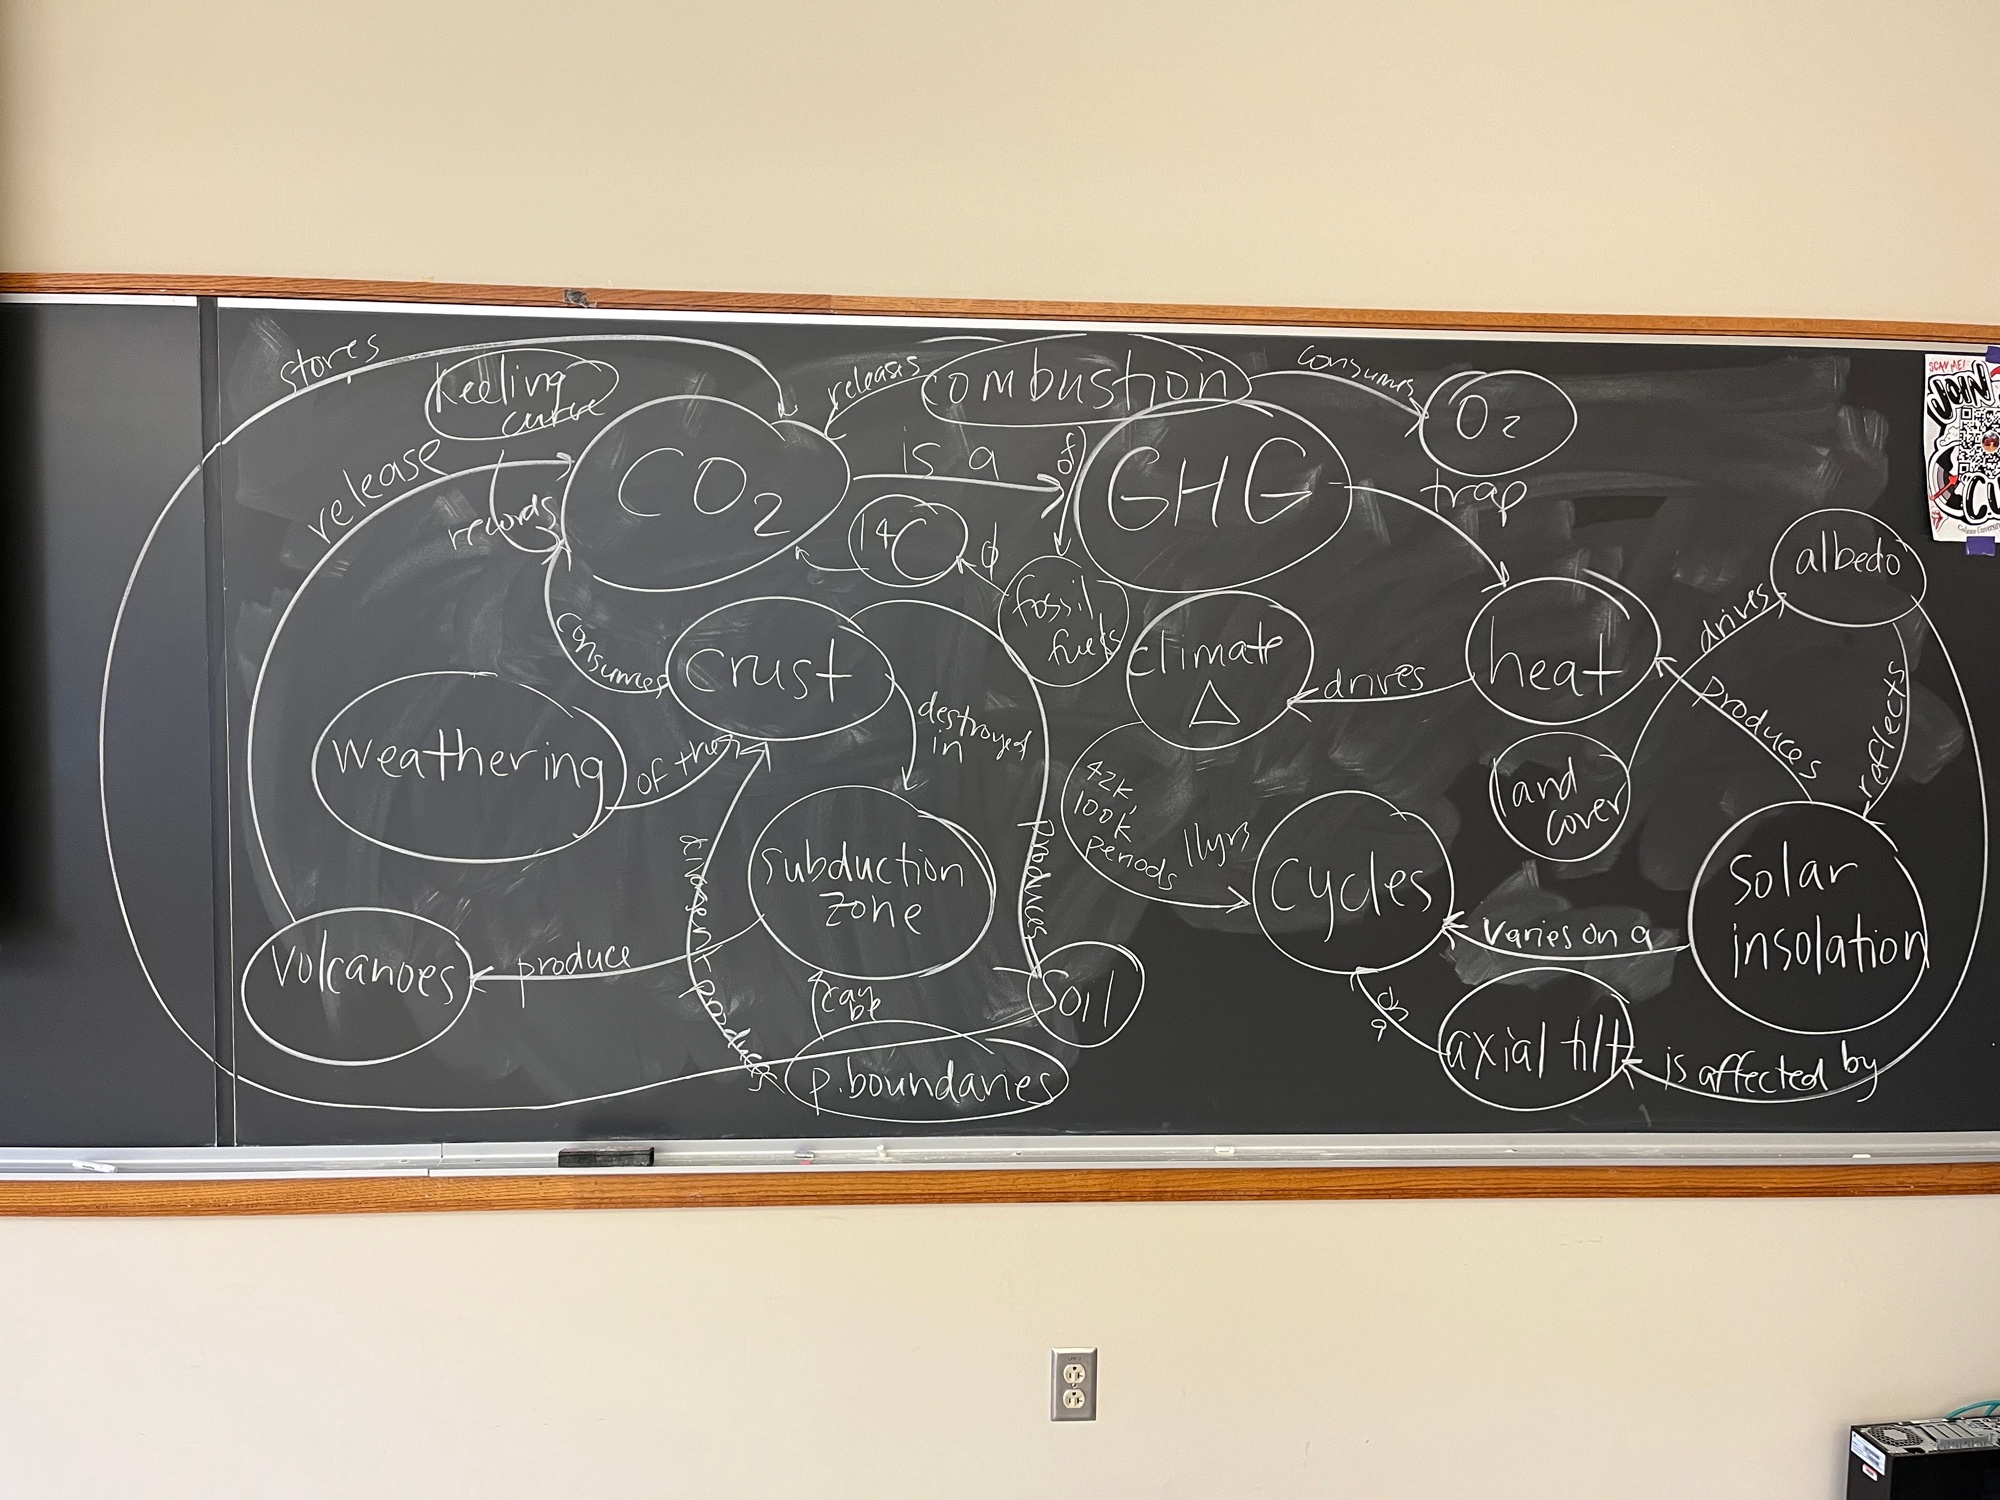 stores
Keeling
curve
releases
combustion
consumes
O2
release
records
CO2
is a
of
GHG
trap
14C
fossil
fuels
albedo
consumes
crust
climate
Δ
drives
heat
drives
produces
reflects
weathering
of the
destroyed
in
42k,
100k
periods
11yrs
land
cover
subduction
zone
produces
cycles
solar
insolation
varies on a
volcanoes
produce
can
be
soil
on
a
axial tilt
is affected by
p.boundaries
SCAN ME!
JOIN